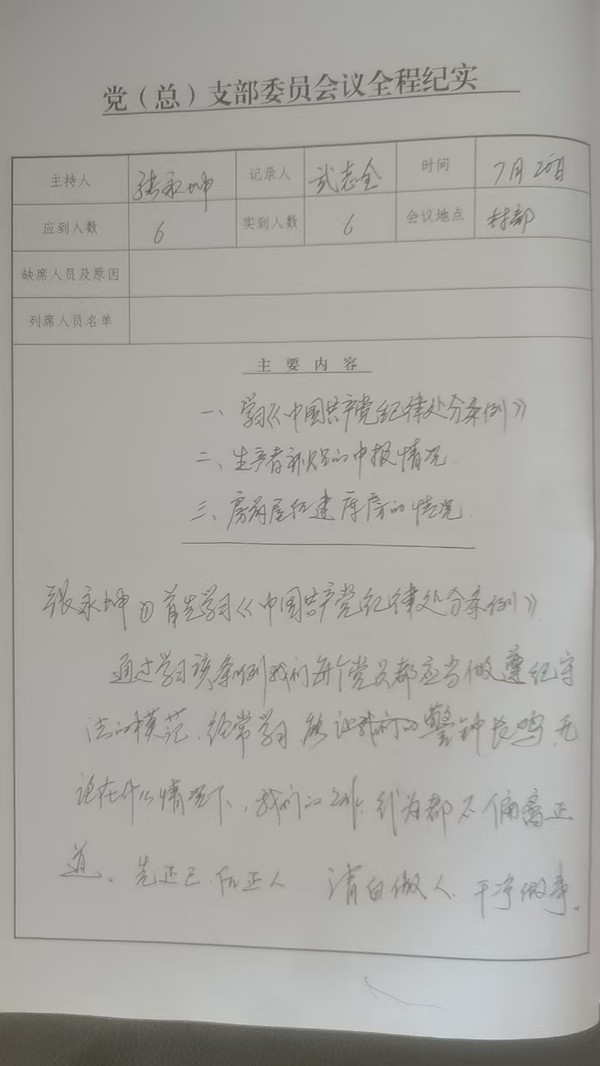 党（总）支部委员会议全程纪实
主持人 张永坤 记录人 武志全 时间 7月 日
应到人数 6 实到人数 6 会议地点 村部
缺席人员及原因
列席人员名单
主要内容
一、学习《中国共产党纪律处分条例》
二、生产者补贴的申报情况
三、房 屋 建库房的情况.
张永坤 首先学习《中国共产党纪律处分条例》.
通过学习该条例我们每个党员都应当做遵纪守
法的模范、经常学习 能让我们的警钟长鸣 无
论在什么情况下，我们的工作、行为都不偏离正
道、先正己 后正人 清白做人 干净做事。